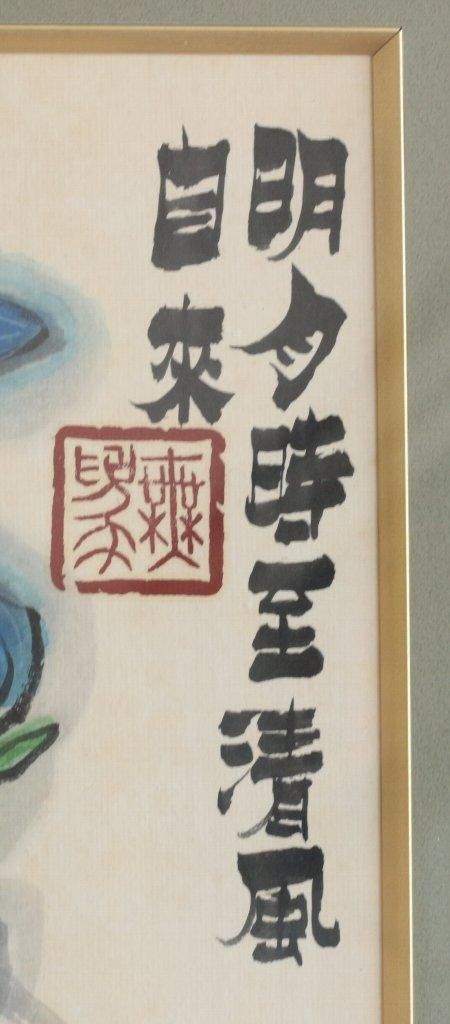 明月時至清風
自來